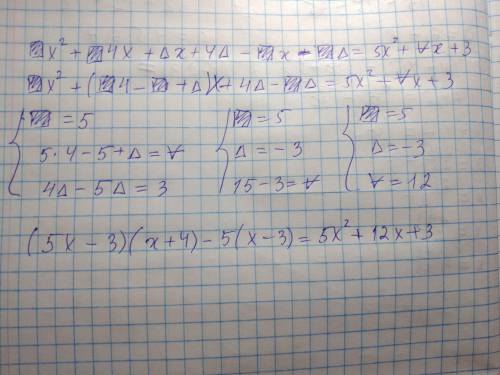 ▨x² + ▨4x + Δx + 4Δ - ▨x - ▨Δ = 5x² + ∀x + 3
▨x² + (▨4 - ▨ + Δ)x + 4Δ - ▨Δ = 5x² + ∀x + 3
{ ▨ = 5 { ▨ = 5 { ▨ = 5
5·4 - 5 + Δ = ∀ Δ = -3 Δ = -3
4Δ - 5Δ = 3 15 - 3 = ∀ ∀ = 12
(5x - 3)(x + 4) - 5(x - 3) = 5x² + 12x + 3